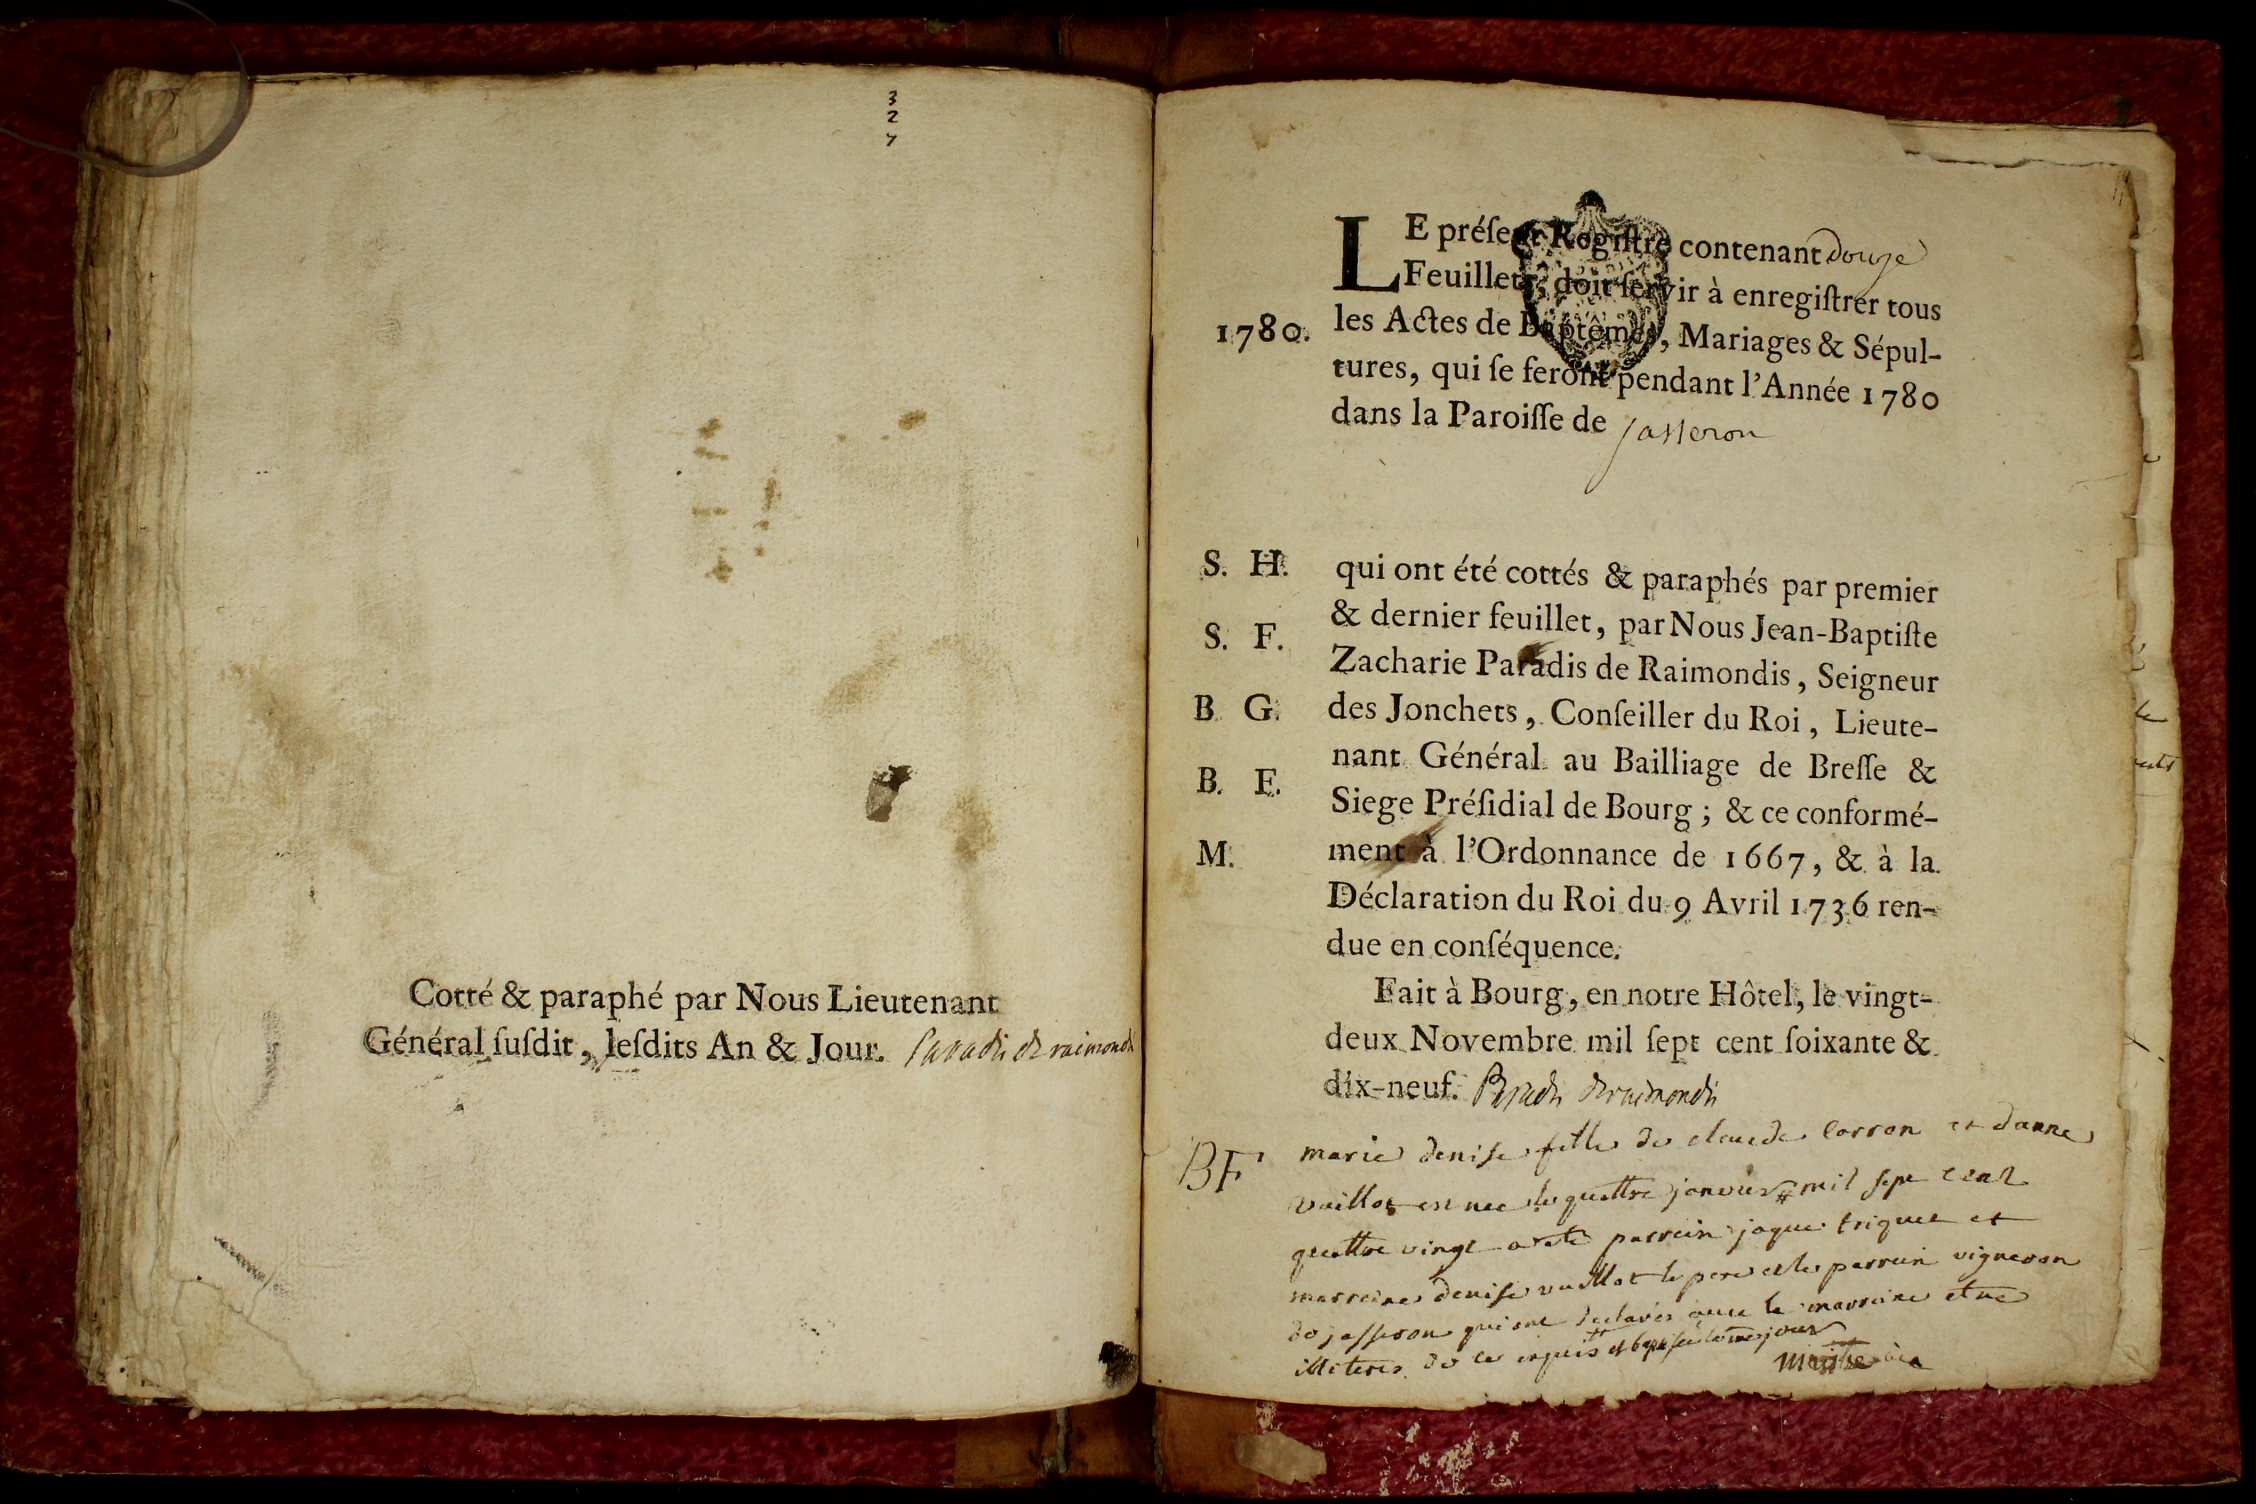 3
2
7
Cotté & paraphé par Nous Lieutenant
Général ſuſdit, leſdits An & Jour. Paradis de raimondis
LE préſent Regiſtre contenant douze
Feuillets, doit ſervir à enregiſtrer tous
1780. les Actes de Baptêmes, Mariages & Sépul-
tures, qui ſe feront pendant l'Année 1780
dans la Paroiſſe de Jasseron
S. H. qui ont été cottés & paraphés par premier
& dernier feuillet, par Nous Jean-Baptiſte
S. F. Zacharie Paradis de Raimondis, Seigneur
B G. des Jonchets, Conſeiller du Roi, Lieute-
nant Général au Bailliage de Breſſe &
B. F. Siege Préſidial de Bourg; & ce conformé-
M. ment à l'Ordonnance de 1667, & à la
Déclaration du Roi du 9 Avril 1736 ren-
due en conſéquence.
Fait à Bourg, en notre Hôtel, le vingt-
deux Novembre mil ſept cent ſoixante &
dix-neuf. Paradis de raimondis
BF marie denise fille de claude Corron et danne
vuillot est nee le quattre janvier mil sept cent
quattre vingt a ete parrein jaque triquet et
marreine denise vuillot le pere et le parrein vigneron
de jasseron qui ont declarés avec la marreine etre
illiteres de ce enquis et baptisée le meme jour